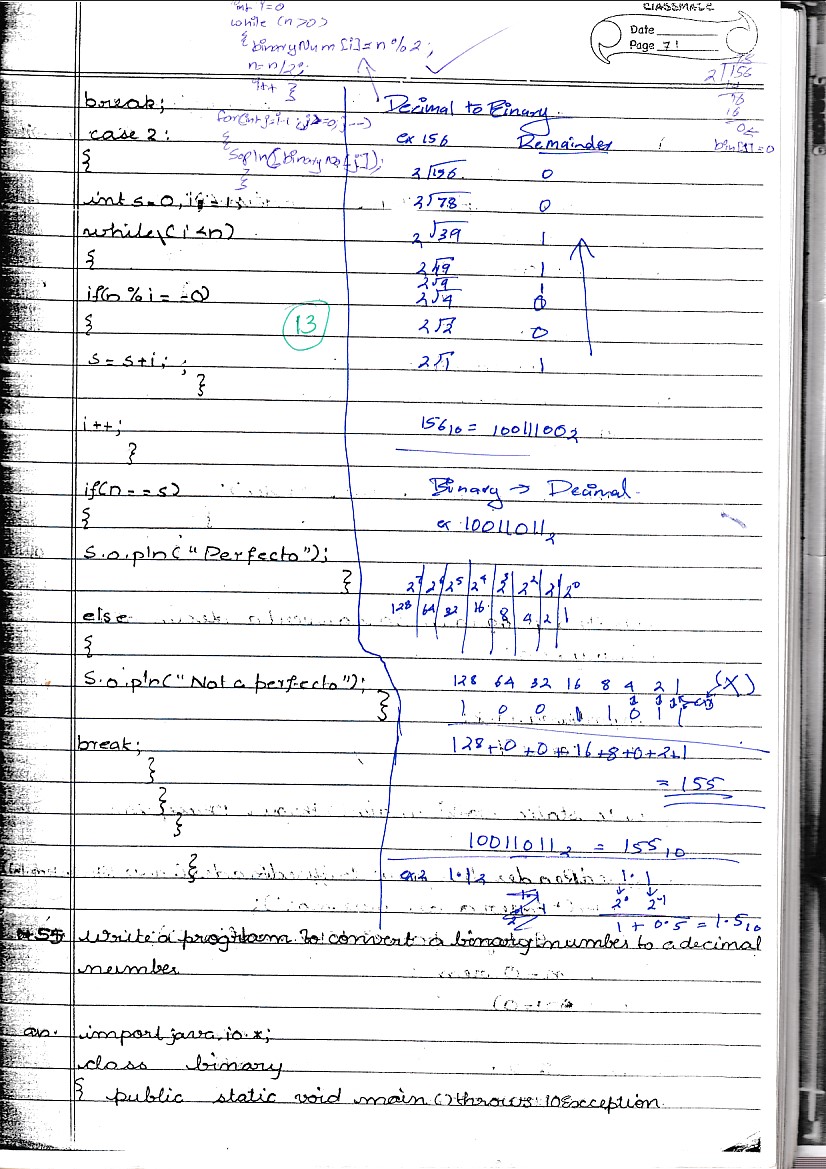 CLASSMATE
Date
Page 71
int i=0
while (n>0)
{ binaryNum[i]=n%2;
n=n/2;
i++ }
for(int j=i-1; j>=0; j--)
{
Sopln(binaryNo[j]);
}
}
2√156
78
break;
case 2:
{
int s=0, i=1;
while(i<n)
{
if(n%i==0)
{
s=s+i;
}
i++;
}
if(n==s)
{
S.o.pln("Perfecto");
}
else
{
S.o.pln("Not a perfecto");
}
break;
}
}
}
}
13
Decimal to Binary
ex 156 Remainder
2√156 0
2√78 0
2√39 1
2√19 1
2√9 1
2√4 0
2√2 0
2√1 1
156₁₀ = 10011100₂
Binary → Decimal
ex 10011011₂
2⁷ 2⁶ 2⁵ 2⁴ 2³ 2² 2¹ 2⁰
128 64 32 16 8 4 2 1
128 64 32 16 8 4 2 1 (X)
1 0 0 1 1 0 1 1
128+0+0+16+8+0+2+1
= 155
10011011₂ = 155₁₀
ex2 1.1₂ 1. 1
2⁰ 2⁻¹
1 + 0.5 = 1.5₁₀
Write a program to convert a binary number to a decimal
number
an. import java.io.*;
class binary
{ public static void main()throws IOException